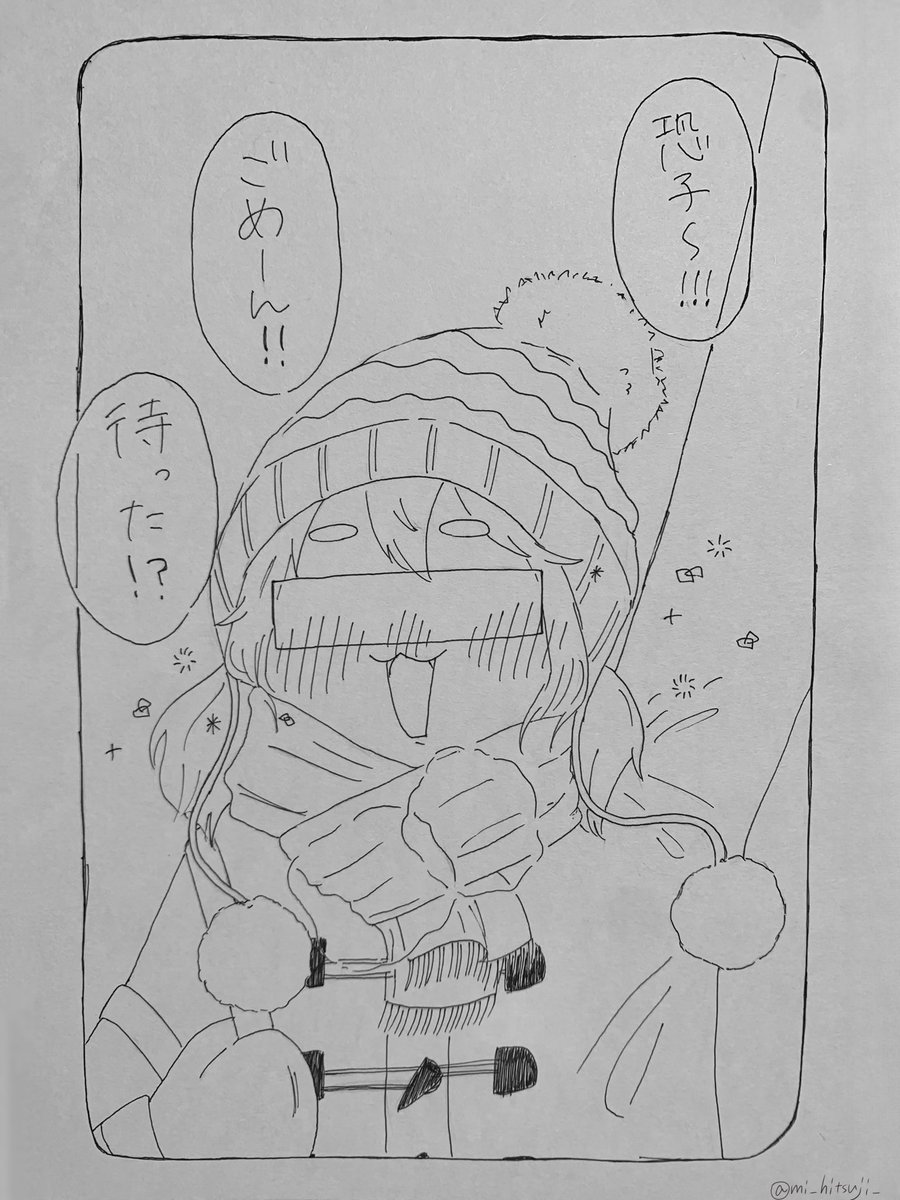 恐子〜!!!
ごめーん!!
待った!?
@mi_hitsuji_